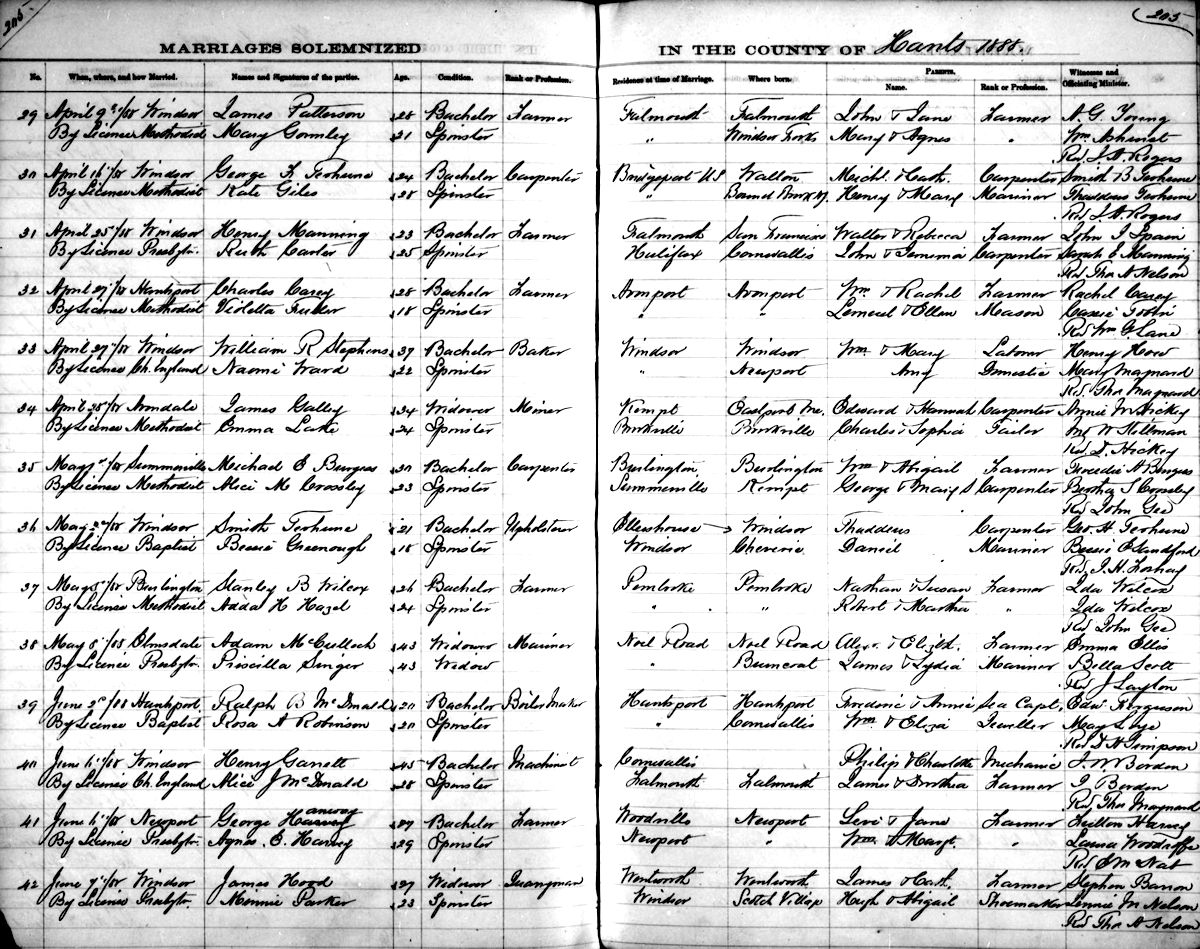 205
203
MARRIAGES SOLEMNIZED IN THE COUNTY OF Hants 1888.
No. When, where, and how Married. Names and Signatures of the parties. Age. Condition. Rank or Profession. Residence at time of Marriage. Where born. PARENTS. Name. Rank or Profession. Witnesses and Officiating Minister.
29 April 9th/88 Windsor James Patterson 28 Bachelor Farmer Falmouth Falmouth John & Jane Farmer A. G. Young
By Licence Methodist Mary Gormley 21 Spinster " Windsor Forks Mary & Agnes " Wm Ashurst
Rev J. A. Rogers
30 April 16/88 Windsor George F Terhune 24 Bachelor Carpenter Bridgeport US Walton Michl. & Cath. Carpenter Smith B Terhune
By Licence Methodist Kate Giles 28 Spinster " Henry & Mary Mariner Thaddeus Terhune
Rev J. A. Rogers
31 April 25/88 Windsor Henry Manning 23 Bachelor Farmer Falmouth San Francisco Walter & Rebecca Farmer John I Spain
By Licence Presbytr. Ruth Carter 25 Spinster Halifax Cornwallis John & Jemima Carpenter Sarah E Manning
Rev Thos A Nelson
32 April 27/88 Hantsport Charles Carey 28 Bachelor Farmer Avonport Avonport Wm. & Rachel Farmer Rachel Carey
By Licence Methodist Violetta Fuller 18 Spinster " " Lemuel & Ellen Mason Cassie
Rev Wm G. Lane
33 April 27/88 Windsor William R Stephens 37 Bachelor Baker Windsor Windsor Wm. & Mary Labour Henry How
By Licence Ch. England Naomi Ward 22 Spinster " Newport Amy Domestic Mary Maynard
Rev. Thos Maynard
34 April 28/88 Avondale James Galley 34 Widower Miner Kempt Eastport Me. Edward & Hannah Carpenter Annie M Hickey
By Licence Methodist Emma Lake 24 Spinster Brookville Brookville Charles & Sophia Tailor W Stillman
Rev. D. Hickey
35 May 1st/88 Summerville Michael E Burgess 30 Bachelor Carpenter Burlington Burlington Wm & Abigail Farmer A Burgess
By Licence Methodist Alice M Crossley 23 Spinster Summerville Kempt George & Mary S Carpenter Bertha S Crossley
Rev John Gee
36 May 2nd/88 Windsor Smith Terhune 21 Bachelor Upholsterer Ellershouse Windsor Thaddeus Carpenter Geo. H. Terhune
By Licence Baptist Bessie Greenough 18 Spinster Windsor Cheverie Daniel Mariner Bessie E Sandford
Rev. J. H. Foshay
37 May 8/88 Burlington Stanley B Wilcox 26 Bachelor Farmer Pembroke Pembroke Nathan & Susan Farmer Ida Wilcox
By Licence Methodist Adda H Hazel 24 Spinster " " Robert & Martha " Ida Wilcox
Rev John Gee
38 May 8/88 Elmsdale Adam McCulloch 43 Widower Mariner Noel Road Noel Road Alexr. & Elizth. Farmer Emma Ellis
By Licence Presbytr. Priscilla Singer 43 Widow " Burncoat James & Lydia Mariner Bella Scott
Rev J Layton
39 June 2nd/88 Hantsport Ralph B McDonald 20 Bachelor Boiler Maker Hantsport Hantsport Frederic & Annie Sea Capt. Edw. Ferguson
By Licence Baptist Rosa A Robinson 20 Spinster " Cornwallis Wm & Eliza Jeweller May
Rev D H Simpson
40 June 6/88 Windsor Henry Garrett 45 Bachelor Machinist Cornwallis Philip & Charlotte Mechanic J. W. Borden
By Licence Ch. England Alice J McDonald 28 Spinster Falmouth Falmouth James & Dorthea Farmer J Borden
Rev Thos Maynard
41 June 6/88 Newport George Harvey anway 27 Bachelor Farmer Woodville Newport Levi & Jane Farmer Harvey
By Licence Presbytr. Agnes E. Harvey 29 Spinster Newport " Wm. & Margt. " Laura Woodroffe
42 June 7/88 Windsor James Hood 27 Widower Quarryman Wentworth Wentworth James & Cath. Farmer Stephen Barron
By Licence Presbytr. Minnie Parker 23 Spinster Windsor Scotch Village Hugh & Abigail Shoemaker Jennie M Nelson
Rev Thos A Nelson